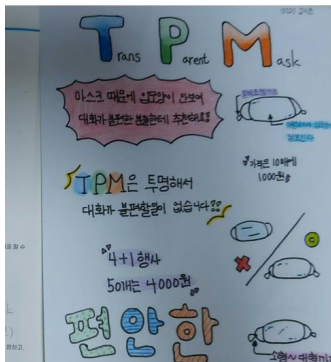 Trans Parent Mask
마스크 때문에 입모양이 안보여
대화가 불편한 분들한테 추천해요!
가격은 10매에
1000원
TPM은 투명해서
대화가 불편할일이 없습니다!!
4+1 행사
50개는 4000원
편안하
소형~대형